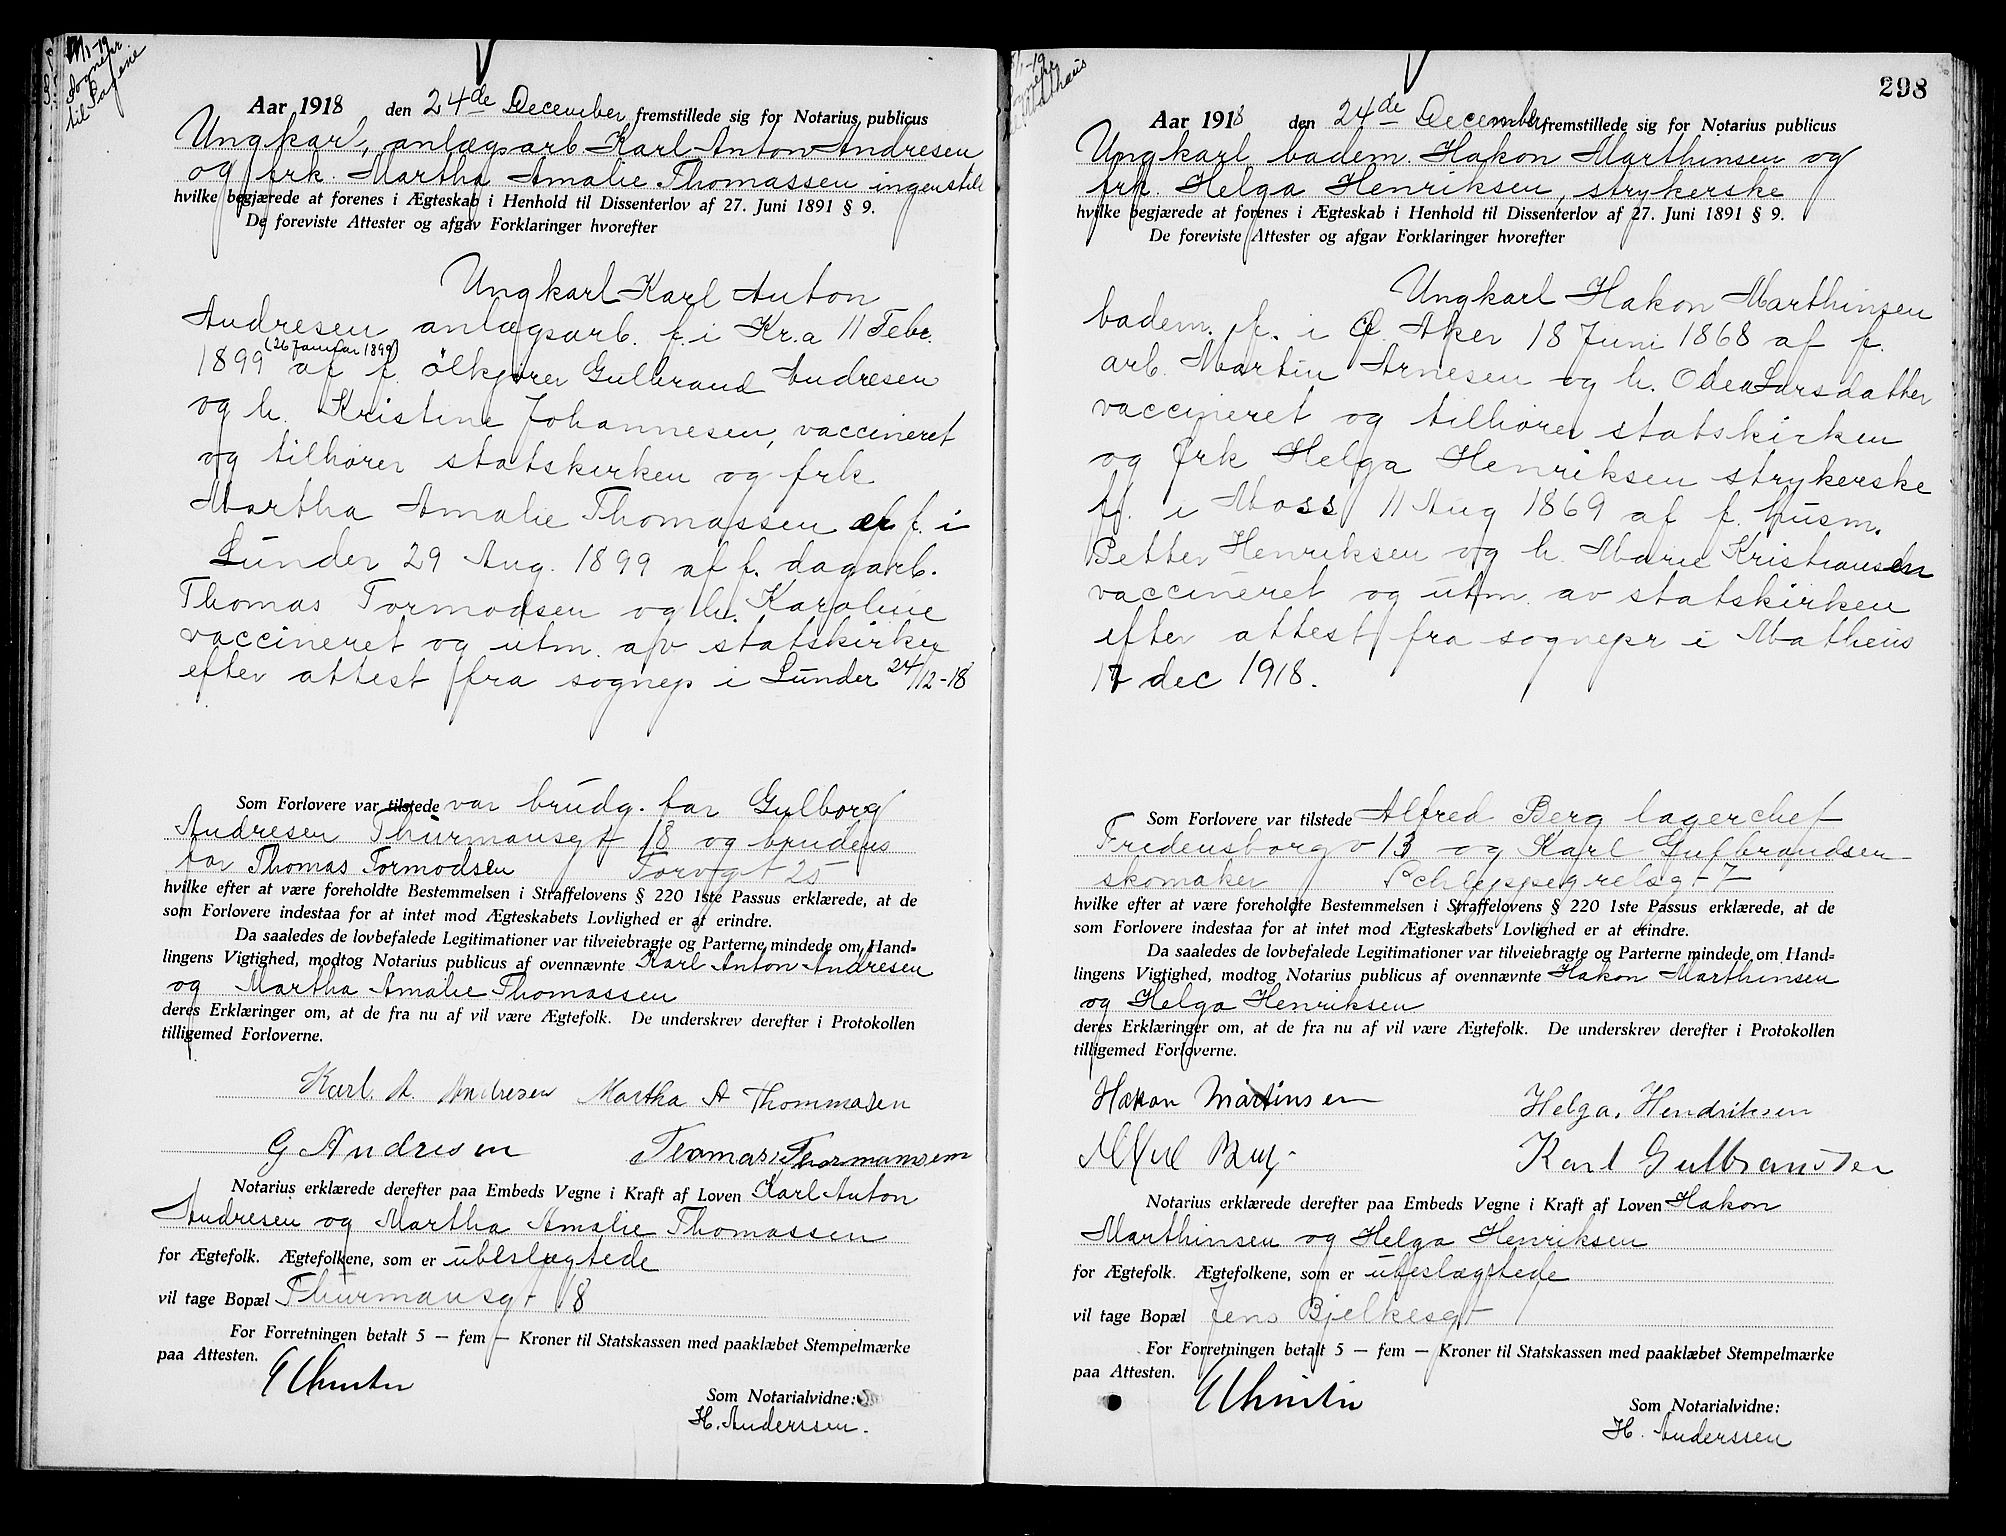 11/1-19
Sognepr.
til Sagene
Aar 1918 den 24de December fremstillede sig for Notarius publicus
Ungkarl, anlægsarb Karl Anton Andresen
og frk. Martha Amalie Thomassen ingen still
hvilke begjærede at forenes i Ægteskab i Henhold til Dissenterlov af 27. Juni 1891 § 9.
De foreviste Attester og afgav Forklaringer hvorefter
Ungkarl Karl Anton
Andresen anlægsarb. f. i Kr.a 11 Febr.
(26 januar 1899)
1899 af f. ölkjører Gulbrand Andresen
og h. Kristine Johannesen, vaccineret
og tilhører statskirken og frk
Martha Amalie Thomassen er f. i
Lunder 29 Aug. 1899 af f. dagarb.
Thomas Tormodsen og h. Karoline
vaccineret og utm. av statskirken
efter attest fra sognepr i Lunder 24/12-18
Som Forlovere var tilstede var brudg. far Gulborg
Andresen Thurmansgt 18 og brudens
far Thomas Tormodsen Torvgt 25
hvilke efter at være foreholdte Bestemmelsen i Straffelovens § 220 1ste Passus erklærede, at de
som Forlovere indestaa for at intet mod Ægteskabets Lovlighed er at erindre.
Da saaledes de lovbefalede Legitimationer var tilveiebragte og Parterne mindede om Hand=
lingens Vigtighed, modtog Notarius publicus af ovennævnte Karl Anton Andresen
og Martha Amalie Thomassen
deres Erklæringer om, at de fra nu af vil være Ægtefolk. De underskrev derefter i Protokollen
tilligemed Forloverne.
Karl. A. Andresen Martha A Thommasen
G Andresen Thomas Thormomsen
Notarius erklærede derefter paa Embeds Vegne i Kraft af Loven Karl Anton
Andresen og Martha Amalie Thomassen
for Ægtefolk. Ægtefolkene, som er ubeslægtede
vil tage Bopæl Thurmansgt 18
For Forretningen betalt 5 — fem — Kroner til Statskassen med paaklæbet Stempelmærke
paa Attesten.
Som Notarialvidne:
H. Anderssen.
298
Aar 1918 den 24de December fremstillede sig for Notarius publicus
Ungkarl badem. Hakon Marthinsen og
frk. Helga Henriksen, strykerske
hvilke begjærede at forenes i Ægteskab i Henhold til Dissenterlov af 27. Juni 1891 § 9.
De foreviste Attester og afgav Forklaringer hvorefter
Ungkarl Hakon Marthinsen
badem. f. i Ø. Aker 18 Juni 1868 af f.
arb. Martin Arnesen og h. Odea Larsdatther
vaccineret og tilhører statskirken
og frk Helga Henriksen strykerske
f. i Moss 11 Aug 1869 af f. husm.
Petter Henriksen og h. Marie Kristiansen
vaccineret og utm. av statskirken
efter attest fra sognepr i Matheus
17 dec 1918.
Som Forlovere var tilstede Alfred Berg lagerchef
Fredensborgv 13 og Karl Gulbrandsen
skomaker Schleppegrelsgt 7
hvilke efter at være foreholdte Bestemmelsen i Straffelovens § 220 1ste Passus erklærede, at de
som Forlovere indestaa for at intet mod Ægteskabets Lovlighed er at erindre.
Da saaledes de lovbefalede Legitimationer var tilveiebragte og Parterne mindede om Hand=
lingens Vigtighed, modtog Notarius publicus af ovennævnte Hakon Marthinsen
og Helga Henriksen
deres Erklæringer om, at de fra nu af vil være Ægtefolk. De underskrev derefter i Protokollen
tilligemed Forloverne.
Hakon Martinsen Helga. Hendriksen
Alfred Berg Karl Gulbransen
Notarius erklærede derefter paa Embeds Vegne i Kraft af Loven Hakon
Marthinsen og Helga Henriksen
for Ægtefolk. Ægtefolkene, som er ubeslægtede
vil tage Bopæl Jens Bjelkesgt
For Forretningen betalt 5 — fem — Kroner til Statskassen med paaklæbet Stempelmærke
paa Attesten.
Som Notarialvidne:
H. Anderssen